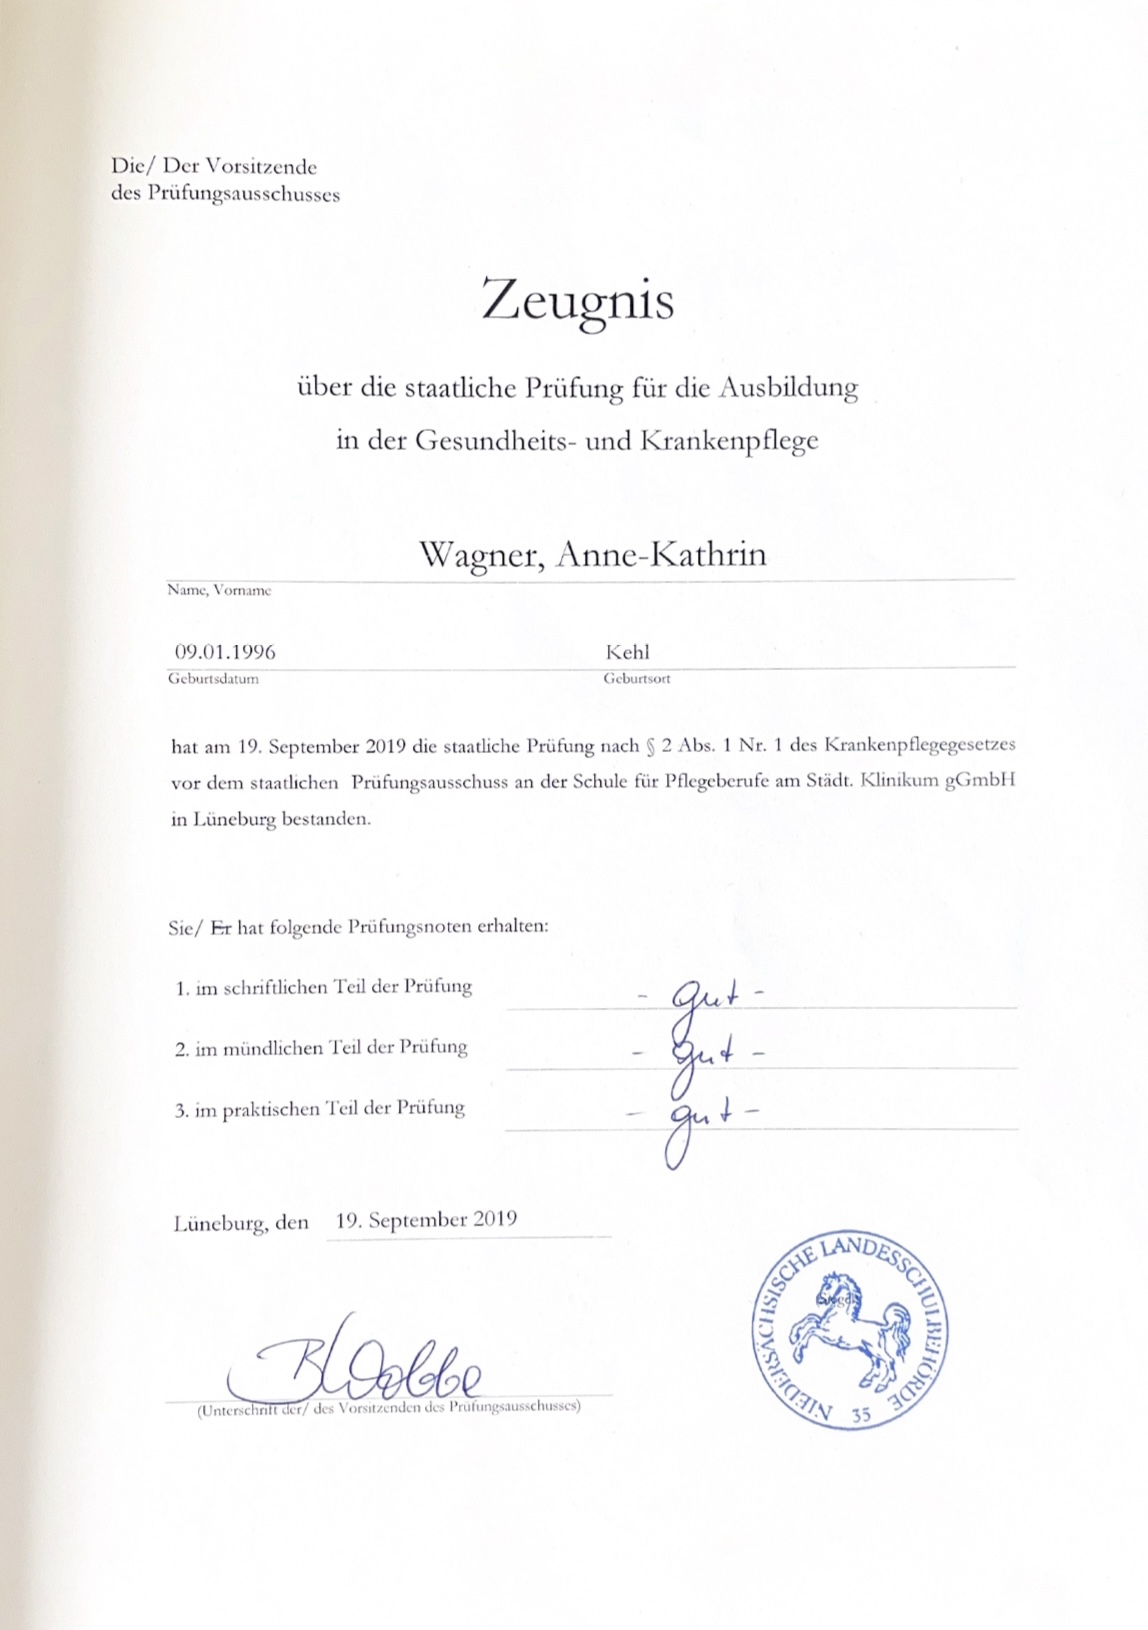 Die/ Der Vorsitzende
des Prüfungsausschusses
Zeugnis
über die staatliche Prüfung für die Ausbildung
in der Gesundheits- und Krankenpflege
Wagner, Anne-Kathrin
Name, Vorname
09.01.1996 Kehl
Geburtsdatum Geburtsort
hat am 19. September 2019 die staatliche Prüfung nach § 2 Abs. 1 Nr. 1 des Krankenpflegegesetzes
vor dem staatlichen Prüfungsausschuss an der Schule für Pflegeberufe am Städt. Klinikum gGmbH
in Lüneburg bestanden.
Sie/ Er hat folgende Prüfungsnoten erhalten:
1. im schriftlichen Teil der Prüfung - gut -
2. im mündlichen Teil der Prüfung - gut -
3. im praktischen Teil der Prüfung - gut -
Lüneburg, den 19. September 2019
NIEDERSÄCHSISCHE LANDESSCHULBEHÖRDE
35
(Unterschrift der/ des Vorsitzenden des Prüfungsausschusses)